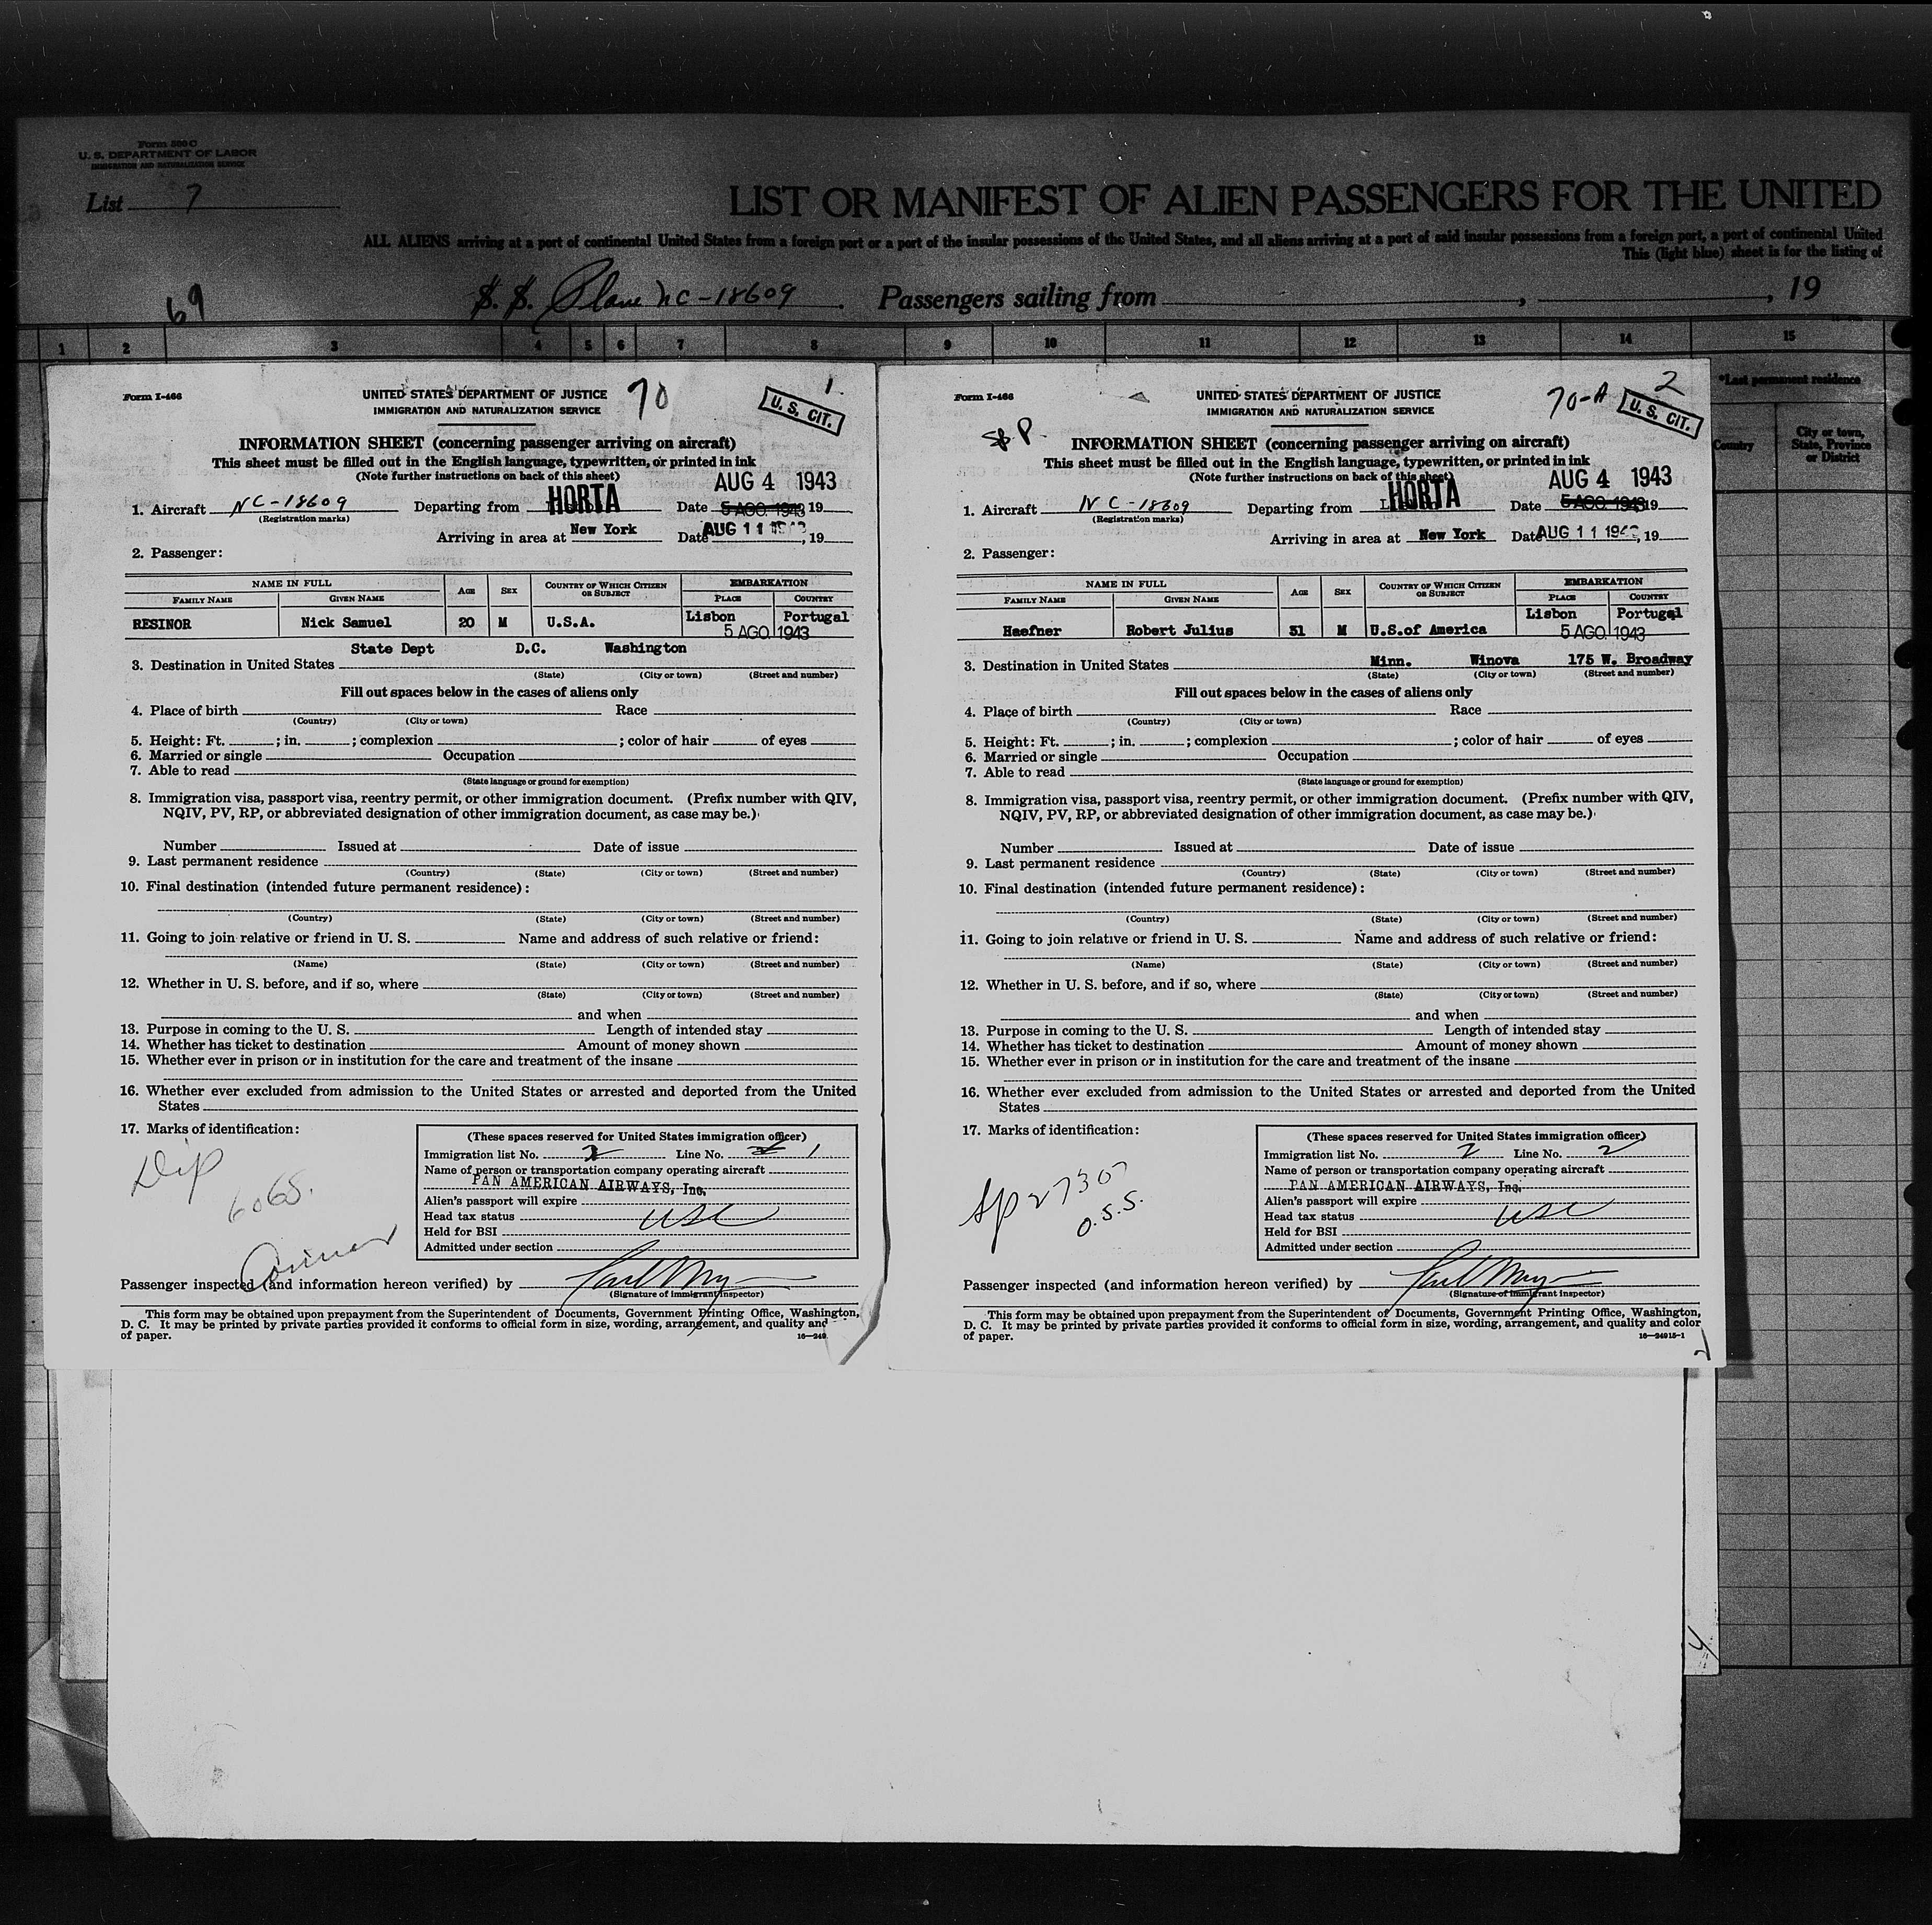 Form 500 C
U. S. DEPARTMENT OF LABOR
IMMIGRATION AND NATURALIZATION SERVICE
List 7
LIST OR MANIFEST OF ALIEN PASSENGERS FOR THE UNITED
ALL ALIENS arriving at a port of continental United States from a foreign port or a port of the insular possessions of the United States, and all aliens arriving at a port of said insular possessions from a foreign port, a port of continental United
This (light blue) sheet is for the listing of
69
S. S. Plane NC-18609 Passengers sailing from , , 19
1 2 3 4 5 6 7 8 9 10 11 12 13 14 15
*Last permanent residence
Country
City or town, State, Province or District
Form I-466
UNITED STATES DEPARTMENT OF JUSTICE
IMMIGRATION AND NATURALIZATION SERVICE
70
1.
U. S. CIT.
INFORMATION SHEET (concerning passenger arriving on aircraft)
This sheet must be filled out in the English language, typewritten, or printed in ink
(Note further instructions on back of this sheet)
AUG 4 1943
1. Aircraft NC-18609 Departing from HORTA Date 5 AGO. 1943 19
(Registration marks)
Arriving in area at New York Date AUG 11 1943, 19
2. Passenger:
NAME IN FULL
FAMILY NAME GIVEN NAME AGE SEX COUNTRY OF WHICH CITIZEN OR SUBJECT EMBARKATION
PLACE COUNTRY
RESINOR Nick Samuel 20 M U.S.A. Lisbon Portugal
5 AGO. 1943
State Dept D.C. Washington
3. Destination in United States
(State) (City or town) (Street and number)
Fill out spaces below in the cases of aliens only
4. Place of birth Race
(Country) (City or town)
5. Height: Ft. ; in. ; complexion ; color of hair of eyes
6. Married or single Occupation
7. Able to read
(State language or ground for exemption)
8. Immigration visa, passport visa, reentry permit, or other immigration document. (Prefix number with QIV,
NQIV, PV, RP, or abbreviated designation of other immigration document, as case may be.)
Number Issued at Date of issue
9. Last permanent residence
(Country) (State) (City or town) (Street and number)
10. Final destination (intended future permanent residence):
(Country) (State) (City or town) (Street and number)
11. Going to join relative or friend in U. S. Name and address of such relative or friend:
(Name) (State) (City or town) (Street and number)
12. Whether in U. S. before, and if so, where
(State) (City or town) (Street and number)
and when
13. Purpose in coming to the U. S. Length of intended stay
14. Whether has ticket to destination Amount of money shown
15. Whether ever in prison or in institution for the care and treatment of the insane
16. Whether ever excluded from admission to the United States or arrested and deported from the United
States
17. Marks of identification:
Dip
6065.
(These spaces reserved for United States immigration officer)
Immigration list No. 2 Line No. 1
Name of person or transportation company operating aircraft
PAN AMERICAN AIRWAYS, Inc.
Alien's passport will expire
Head tax status USC
Held for BSI
Admitted under section
Passenger inspected (and information hereon verified) by
(Signature of immigrant inspector)
This form may be obtained upon prepayment from the Superintendent of Documents, Government Printing Office, Washington,
D. C. It may be printed by private parties provided it conforms to official form in size, wording, arrangement, and quality and
of paper.
16—249
Form I-466
UNITED STATES DEPARTMENT OF JUSTICE
IMMIGRATION AND NATURALIZATION SERVICE
70-A
2
U. S. CIT.
Sp P.
INFORMATION SHEET (concerning passenger arriving on aircraft)
This sheet must be filled out in the English language, typewritten, or printed in ink
(Note further instructions on back of this sheet)
AUG 4 1943
1. Aircraft NC-18609 Departing from HORTA Date 5 AGO. 1943 19
(Registration marks)
Arriving in area at New York Date AUG 11 1943, 19
2. Passenger:
NAME IN FULL
FAMILY NAME GIVEN NAME AGE SEX COUNTRY OF WHICH CITIZEN OR SUBJECT EMBARKATION
PLACE COUNTRY
Haefner Robert Julius 31 M U.S.of America Lisbon Portugal
5 AGO. 1943
3. Destination in United States Minn. Winova 175 W. Broadway
(State) (City or town) (Street and number)
Fill out spaces below in the cases of aliens only
4. Place of birth Race
(Country) (City or town)
5. Height: Ft. ; in. ; complexion ; color of hair of eyes
6. Married or single Occupation
7. Able to read
(State language or ground for exemption)
8. Immigration visa, passport visa, reentry permit, or other immigration document. (Prefix number with QIV,
NQIV, PV, RP, or abbreviated designation of other immigration document, as case may be.)
Number Issued at Date of issue
9. Last permanent residence
(Country) (State) (City or town) (Street and number)
10. Final destination (intended future permanent residence):
(Country) (State) (City or town) (Street and number)
11. Going to join relative or friend in U. S. Name and address of such relative or friend:
(Name) (State) (City or town) (Street and number)
12. Whether in U. S. before, and if so, where
(State) (City or town) (Street and number)
and when
13. Purpose in coming to the U. S. Length of intended stay
14. Whether has ticket to destination Amount of money shown
15. Whether ever in prison or in institution for the care and treatment of the insane
16. Whether ever excluded from admission to the United States or arrested and deported from the United
States
17. Marks of identification:
Sp 27307
O.S.S.
(These spaces reserved for United States immigration officer)
Immigration list No. 2 Line No. 2
Name of person or transportation company operating aircraft
PAN AMERICAN AIRWAYS, Inc.
Alien's passport will expire
Head tax status USC
Held for BSI
Admitted under section
Passenger inspected (and information hereon verified) by
(Signature of immigrant inspector)
This form may be obtained upon prepayment from the Superintendent of Documents, Government Printing Office, Washington,
D. C. It may be printed by private parties provided it conforms to official form in size, wording, arrangement, and quality and color
of paper.
16—24915-1